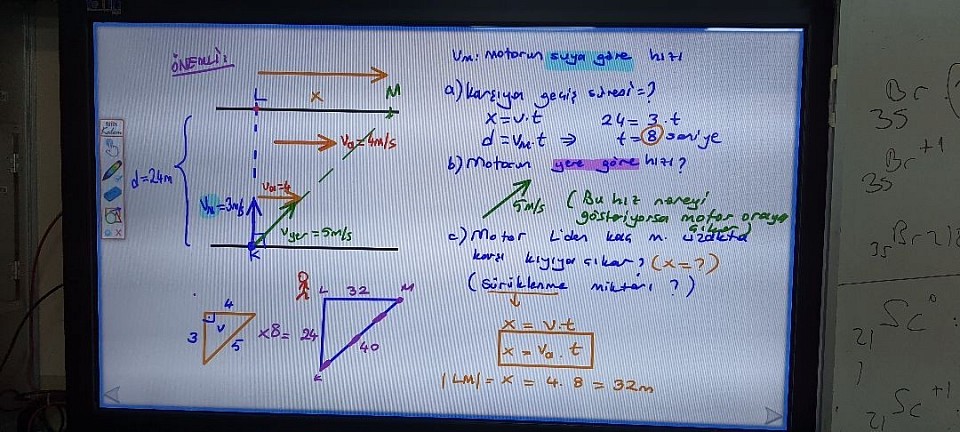 ÖNEMLİ:
x
L
M
Va = 4m/s
d = 24m
Va = 4
Vm = 3m/s
Vyer = 5m/s
K
Vm: Motorun suya göre hızı
a) Karşıya geçiş süresi = ?
x = v.t
24 = 3.t
d = Vm.t ⇒ t = 8 saniye
b) Motorun yere göre hızı?
5m/s
(Bu hız nereyi
gösteriyorsa motor oraya
çıkar)
c) Motor L'den kaç m. uzakta
karşı kıyıya çıkar? (x = ?)
(Sürüklenme miktarı ?)
x = v.t
x = Va . t
|LM| = x = 4. 8 = 32m
4
3
5
x8 =
L
32
M
24
40
K
Br
35
Br +1
35
35 Br
21 Sc
21 Sc +1